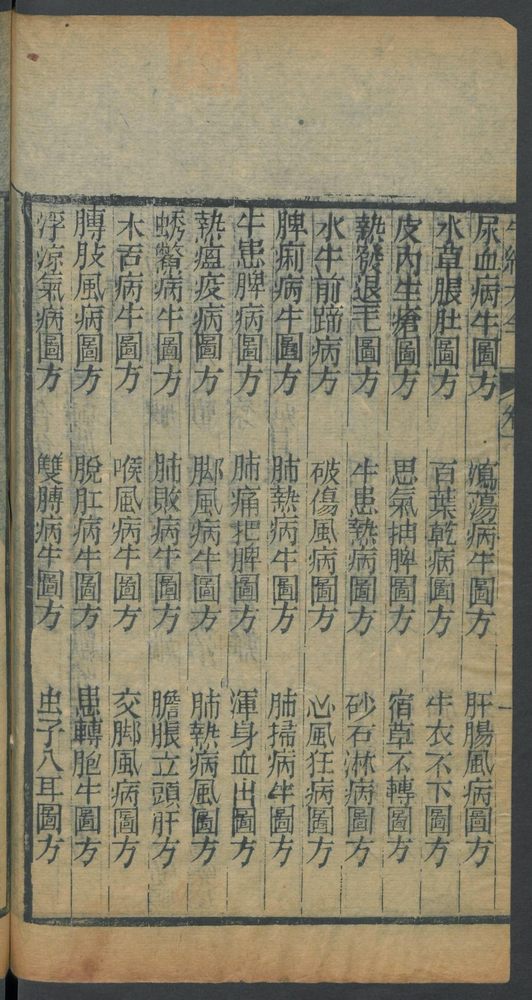 尿血病牛圖方 鴻蕩病牛圖方 肝腸風病圖方
水草脹肚圖方 百葉乾病圖方 牛衣不下圖方
皮內生瘡圖方 思氣抽脾圖方 宿草不轉圖方
熱發退毛圖方 牛患熱病圖方 砂石淋病圖方
水牛前蹄病方 破傷風病圖方 心風狂病圖方
脾痢病牛圖方 肺熱病牛圖方 肺掃病牛圖方
牛患脾病圖方 肺痛把脾圖方 渾身血出圖方
熱瘟疫病圖方 脚風病牛圖方 肺熱病風圖方
病牛圖方 肺敗病牛圖方 膽脹立頭肝方
木舌病牛圖方 喉風病牛啚方 交脚風病圖方
膊肢風病圖方 脫肛病牛圖方 患轉胞牛圖方
浮涼氣病圖方 雙膊病牛圖方 虫子入耳圖方